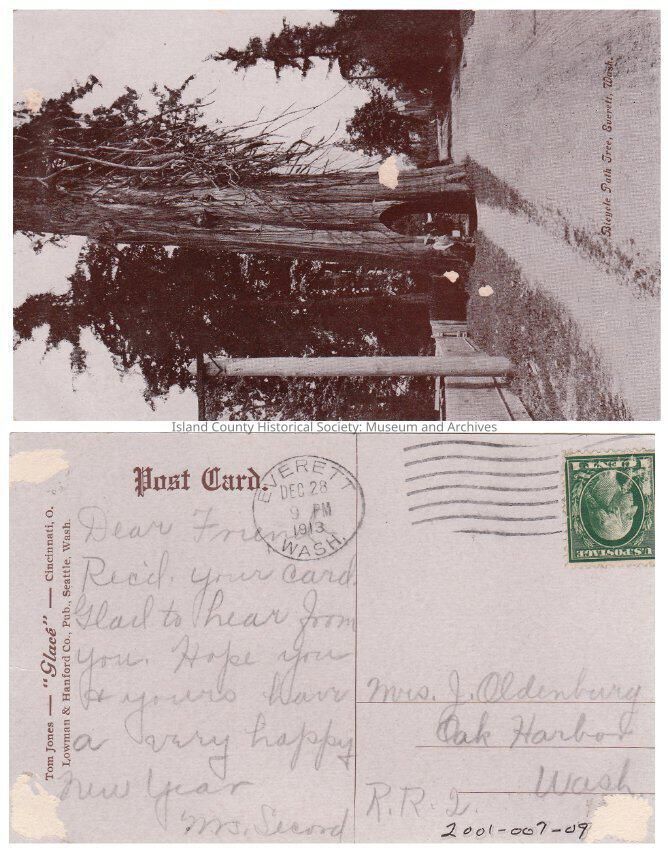 Bicycle Path Tree, Everett, Wash.
Island County Historical Society: Museum and Archives
Post Card.
EVERETT
DEC 28
9 PM
1913
WASH.
U.S.POSTAGE
Tom Jones — "Glacé" — Cincinnati, O.
Lowman & Hanford Co., Pub., Seattle, Wash.
Dear Friend
Rec'd. your card.
Glad to hear from
you. Hope you
& yours have
a very happy
New Year
Mrs. Secord
Mrs. J. Oldenburg
Oak Harbor
Wash
R.R. 2.
2001-007-09